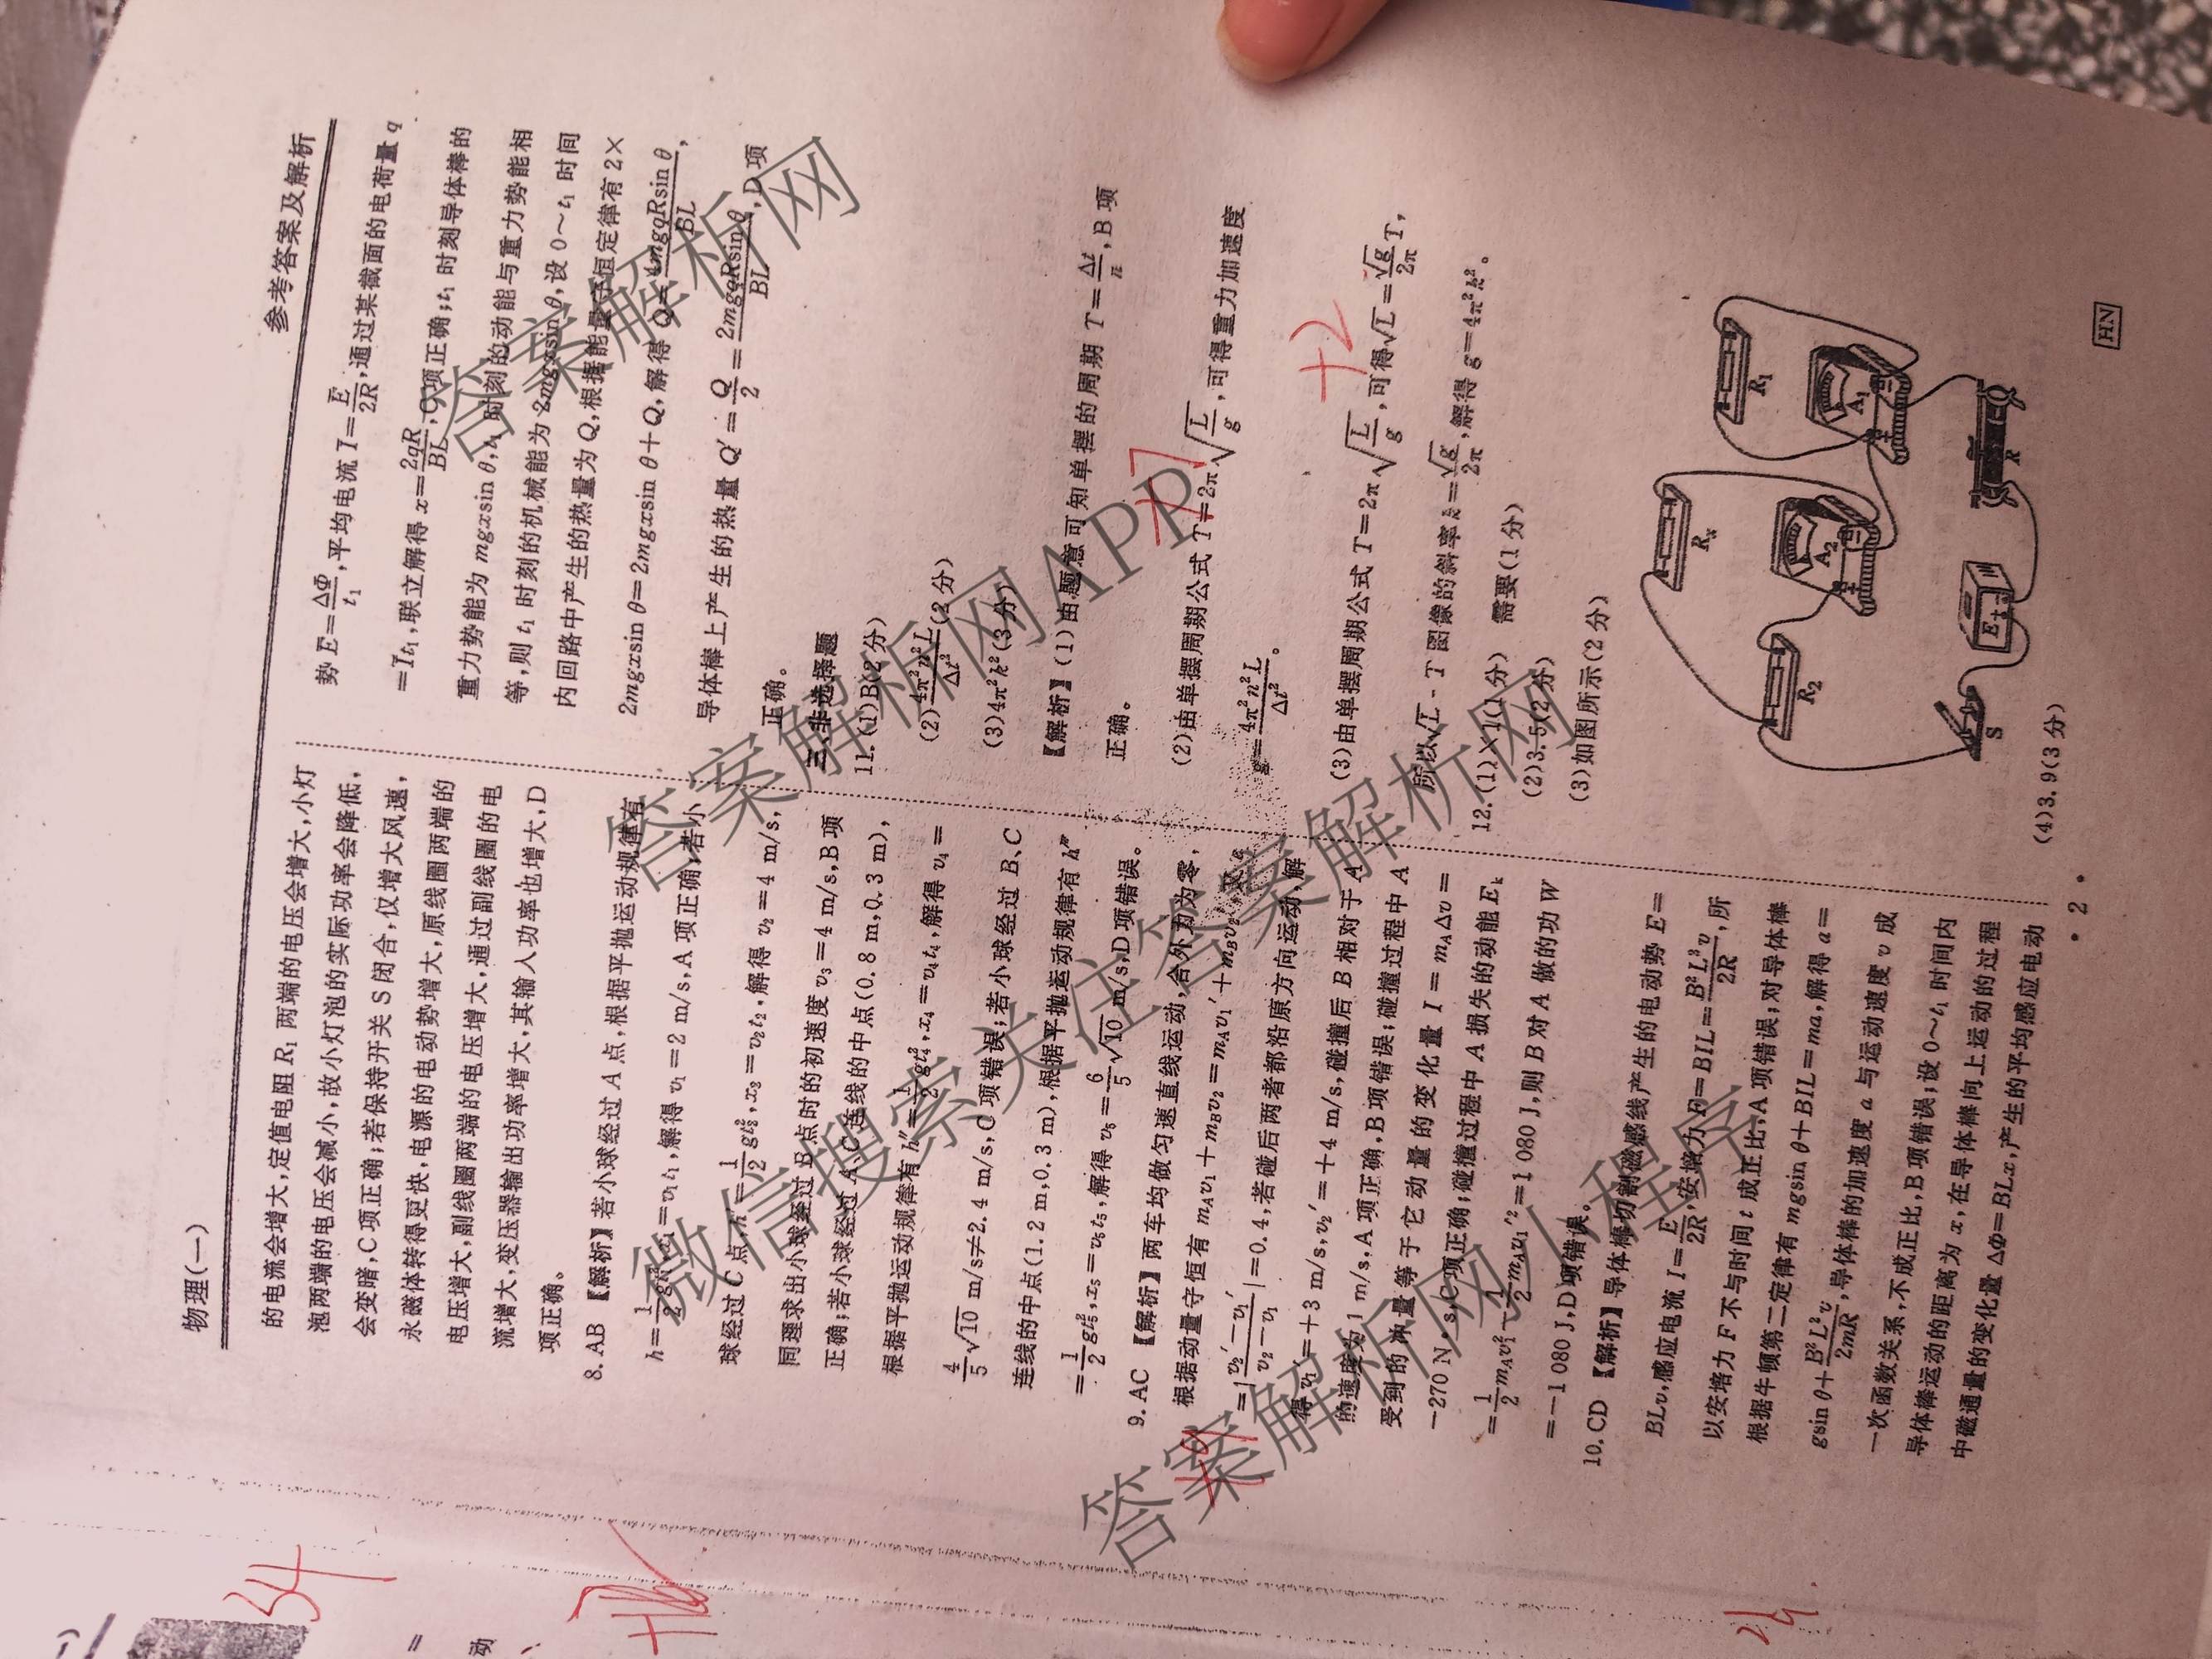 物理(一)
参考答案及解析
的电流会增大,定值电阻 R₁ 两端的电压会增大,小灯
泡两端的电压会减小,故小灯泡的实际功率会降低,
会变暗,C项正确;若保持开关 S 闭合,仅增大风速,
永磁体转得更快,电源的电动势增大,原线圈两端的
电压增大,副线圈两端的电压增大,通过副线圈的电
流增大,变压器输出功率增大,其输入功率也增大,D
项正确。
8. AB 【解析】若小球经过 A 点,根据平抛运动规律有
h=1/2 gt₁²,x₁=v₁t₁,解得 v₁=2 m/s,A 项正确;若小
球经过 C 点,h′=1/2 gt₂²,x₂=v₂t₂,解得 v₂=4 m/s,
同理求出小球经过 B 点时的初速度 v₃=4 m/s,B 项
正确;若小球经过 A、C 连线的中点(0.8 m,0.3 m),
根据平抛运动规律有 h″=1/2 gt₄²,x₄=v₄t₄,解得 v₄=
4/5 √10 m/s≠2.4 m/s,C 项错误;若小球经过 B、C
连线的中点(1.2 m,0.3 m),根据平抛运动规律有 h‴
=1/2 gt₅²,x₅=v₅t₅,解得 v₅=6/5 √10 m/s,D项错误。
9. AC 【解析】两车均做匀速直线运动,合外力为零,
根据动量守恒有 m_Av₁+m_Bv₂=m_Av₁′+m_Bv₂′,又 e
=|(v₂′-v₁′)/(v₂-v₁)|=0.4,若碰后两者都沿原方向运动,解
得 v₁′=+3 m/s,v₂′=+4 m/s,碰撞后 B 相对于 A
的速度为 1 m/s,A 项正确,B 项错误;碰撞过程中 A
受到的冲量等于它动量的变化量 I=m_AΔv=
-270 N·s,C 项正确;碰撞过程中 A 损失的动能 E_k
=1/2 m_Av₁²-1/2 m_Av₁′²=1 080 J,则 B 对 A 做的功 W
=-1 080 J,D 项错误。
10. CD 【解析】导体棒切割磁感线产生的电动势 E=
BLv,感应电流 I=E/2R,安培力 F=BIL=B²L²v/2R,所
以安培力 F 不与时间 t 成正比,A 项错误;对导体棒
根据牛顿第二定律有 mgsin θ+BIL=ma,解得 a=
gsin θ+B²L²v/2mR,导体棒的加速度 a 与运动速度 v 成
一次函数关系,不成正比,B 项错误;设 0~t₁ 时间内
导体棒运动的距离为 x,在导体棒向上运动的过程
中磁通量的变化量 ΔΦ=BLx,产生的平均感应电动
势 E=ΔΦ/t₁,平均电流 I=E/2R,通过某截面的电荷量 q
=It₁,联立解得 x=2qR/BL,C 项正确;t₁ 时刻导体棒的
重力势能为 mgxsin θ,t₁ 时刻的动能与重力势能相
等,则 t₁ 时刻的机械能为 2mgxsin θ,设 0~t₁ 时间
内回路中产生的热量为 Q,根据能量守恒定律有 2×
2mgxsin θ=2mgxsin θ+Q,解得 Q=4mgqRsin θ/BL,
导体棒上产生的热量 Q′=Q/2=2mgqRsin θ/BL,D 项
正确。
三、非选择题
11. (1)B(2分)
(2)4π²n²L/Δt²(2分)
(3)4π²k²(3分)
【解析】(1)由题意可知单摆的周期 T=Δt/n,B 项
正确。
(2)由单摆周期公式 T=2π√(L/g),可得重力加速度
g=4π²n²L/Δt²。
(3)由单摆周期公式 T=2π√(L/g),可得√L=√g/2π T,
所以√L-T 图像的斜率 k=√g/2π,解得 g=4π²k²。
12. (1)×1(1分) 需要(1分)
(2)3.5(2分)
(3)如图所示(2分)
R₂
Rₓ
R₁
A₂
A₁
S
E
R
(4)3.9(3分)
· 2 ·
HN
答案解析网
答案解析网APP
微信搜索关注答案解析网
答案解析网小程序
+7
+2
34
=
动